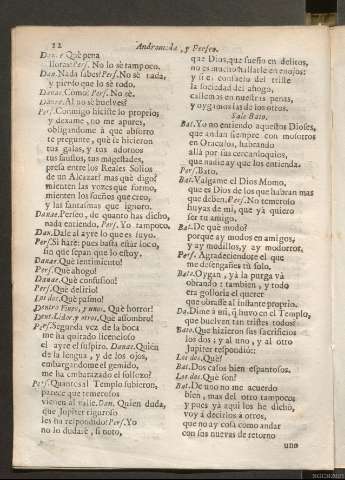 22
Andromeda, y Perseo.
Danae. Què pena
lloras? Pers. No lo sè tampoco.
Dan. Nada sabes? Pers. No sè nada,
y pienso que lo sè todo.
Danae. Como? Pers. No sè.
Danae. Al no sè buelves?
Pers. Conmigo hiciste lo proprio;
y dexame, no me apures,
obligandome à que absorto
te pregunte, què te hicieron
tus galas, y tus adornos
tus faustos, tus magestades,
presa entre los Reales Solios
de un Alcazar? mas què digo?
mienten las vozes que formo,
mienten los sueños que creo,
y las fantasmas que ignoro.
Danae. Perseo, de quanto has dicho,
nada entiendo. Pers. Yo tampoco.
Dan. Dale al ayre lo que es suyo.
Pers. Si harè: pues basta estàr loco,
sin que sepan que lo estoy.
Danae. Què sentimiento!
Pers. Què ahogo!
Danae. Què confusion!
Pers. Què delirio!
Los dos. Què pasmo!
Dentro Unos, y unos. Què horror!
Dent. Lidor. y otros. Què assombro!
Pers. Segunda vez de la boca
me ha quitado licencioso
el ayre el suspiro. Danae. Quièn
de la lengua, y de los ojos,
embargandome el gemido,
me ha embarazado el sollozo?
Pers. Quantos al Templo subieron,
parece que temerosos
vienen al valle. Dan. Quien duda,
que Jupiter riguroso
les ha respondido? Pers. Yo
no lo dudarè, si noto,
que Dios, que sufriò en delitos,
no es mucho hallarle en enojos:
y si es consuelo del triste
la sociedad del ahogo,
callemos en nuestras penas,
y oygamos las de los otros.
Sale Bato.
Bat. Yo no entiendo aquestos Dioses,
que andan siempre con mosotros
en Oraculos, habrando
allà por sus cercanloquios,
que nadie ay que los entienda.
Pers. Bato.
Bat. Valgame el Dios Momo,
que es Dios de los que habran mas
que deben. Pers. No temeroso
huyas de mi, que yà quiero
ser tu amigo.
Bat. De què modo?
porque ay modos en amigos,
y ay modillos, y ay modorros.
Pers. Agradeciendote el que
me desengañes tù solo.
Bat. Oygan, yà la purga và
obrando: tambien, y todo
era golloria el querer
que obrasse al instante proprio.
Da. Dime à mi, què huvo en el Templo,
que buelven tan tristes todos?
Bato. Que hizieron sus sacrificios
los dos: y al uno, y al otro
Jupiter respondiò:
Los dos. Què?
Bat. Dos casos bien espantosos.
Los dos. Què son?
Bat. De uno no me acuerdo
bien, mas del otro tampoco
y pues yà aqui los he dicho,
voy à decirlos à otros,
que no ay cosa como andar
con sus nuevas de retorno
uno